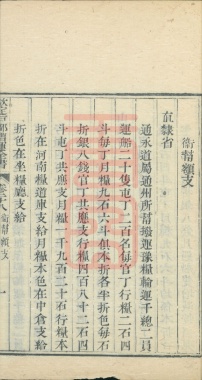 衛幫額支
直隸省
通永道屬通州所幫撥運豫糧輪運千總二員
運船二十隻屯丁二百名每官丁行糧二石四
斗每丁月糧九石六斗俱本折各半折色每石
折銀八錢官丁共應支行糧四百八十二石四
斗屯丁共應支月糧一千九百二十石行糧本
折在河南糧道庫支給月糧本色在中倉支給
折色在坐糧廳支給
欽定戶部漕運全書
卷二十八 衛幫額支
一